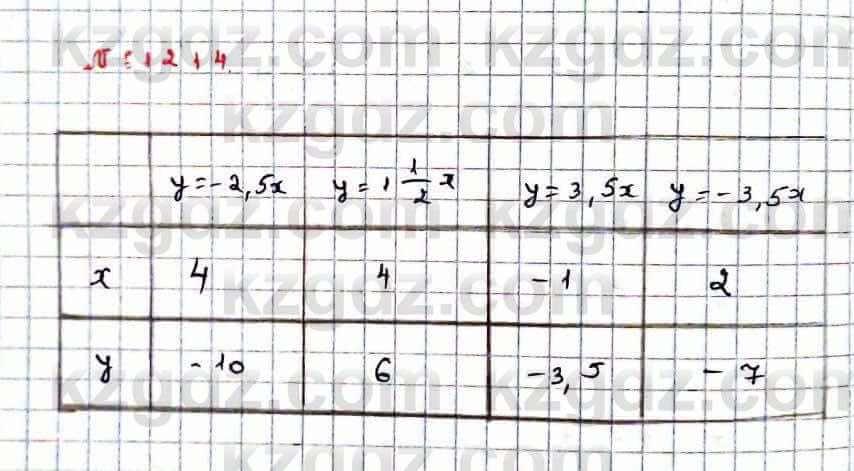 kzgdz.com kzgdz.com
№ 1214.
kzgdz.com
y=-2,5x y=1 1/2 x y=3,5x y=-3,5x
kzgdz.com kzgdz.com
x 4 4 -1 2
kzgdz.com
y -10 6 -3,5 -7
kzgdz.com kzgdz.com
kzgdz.com